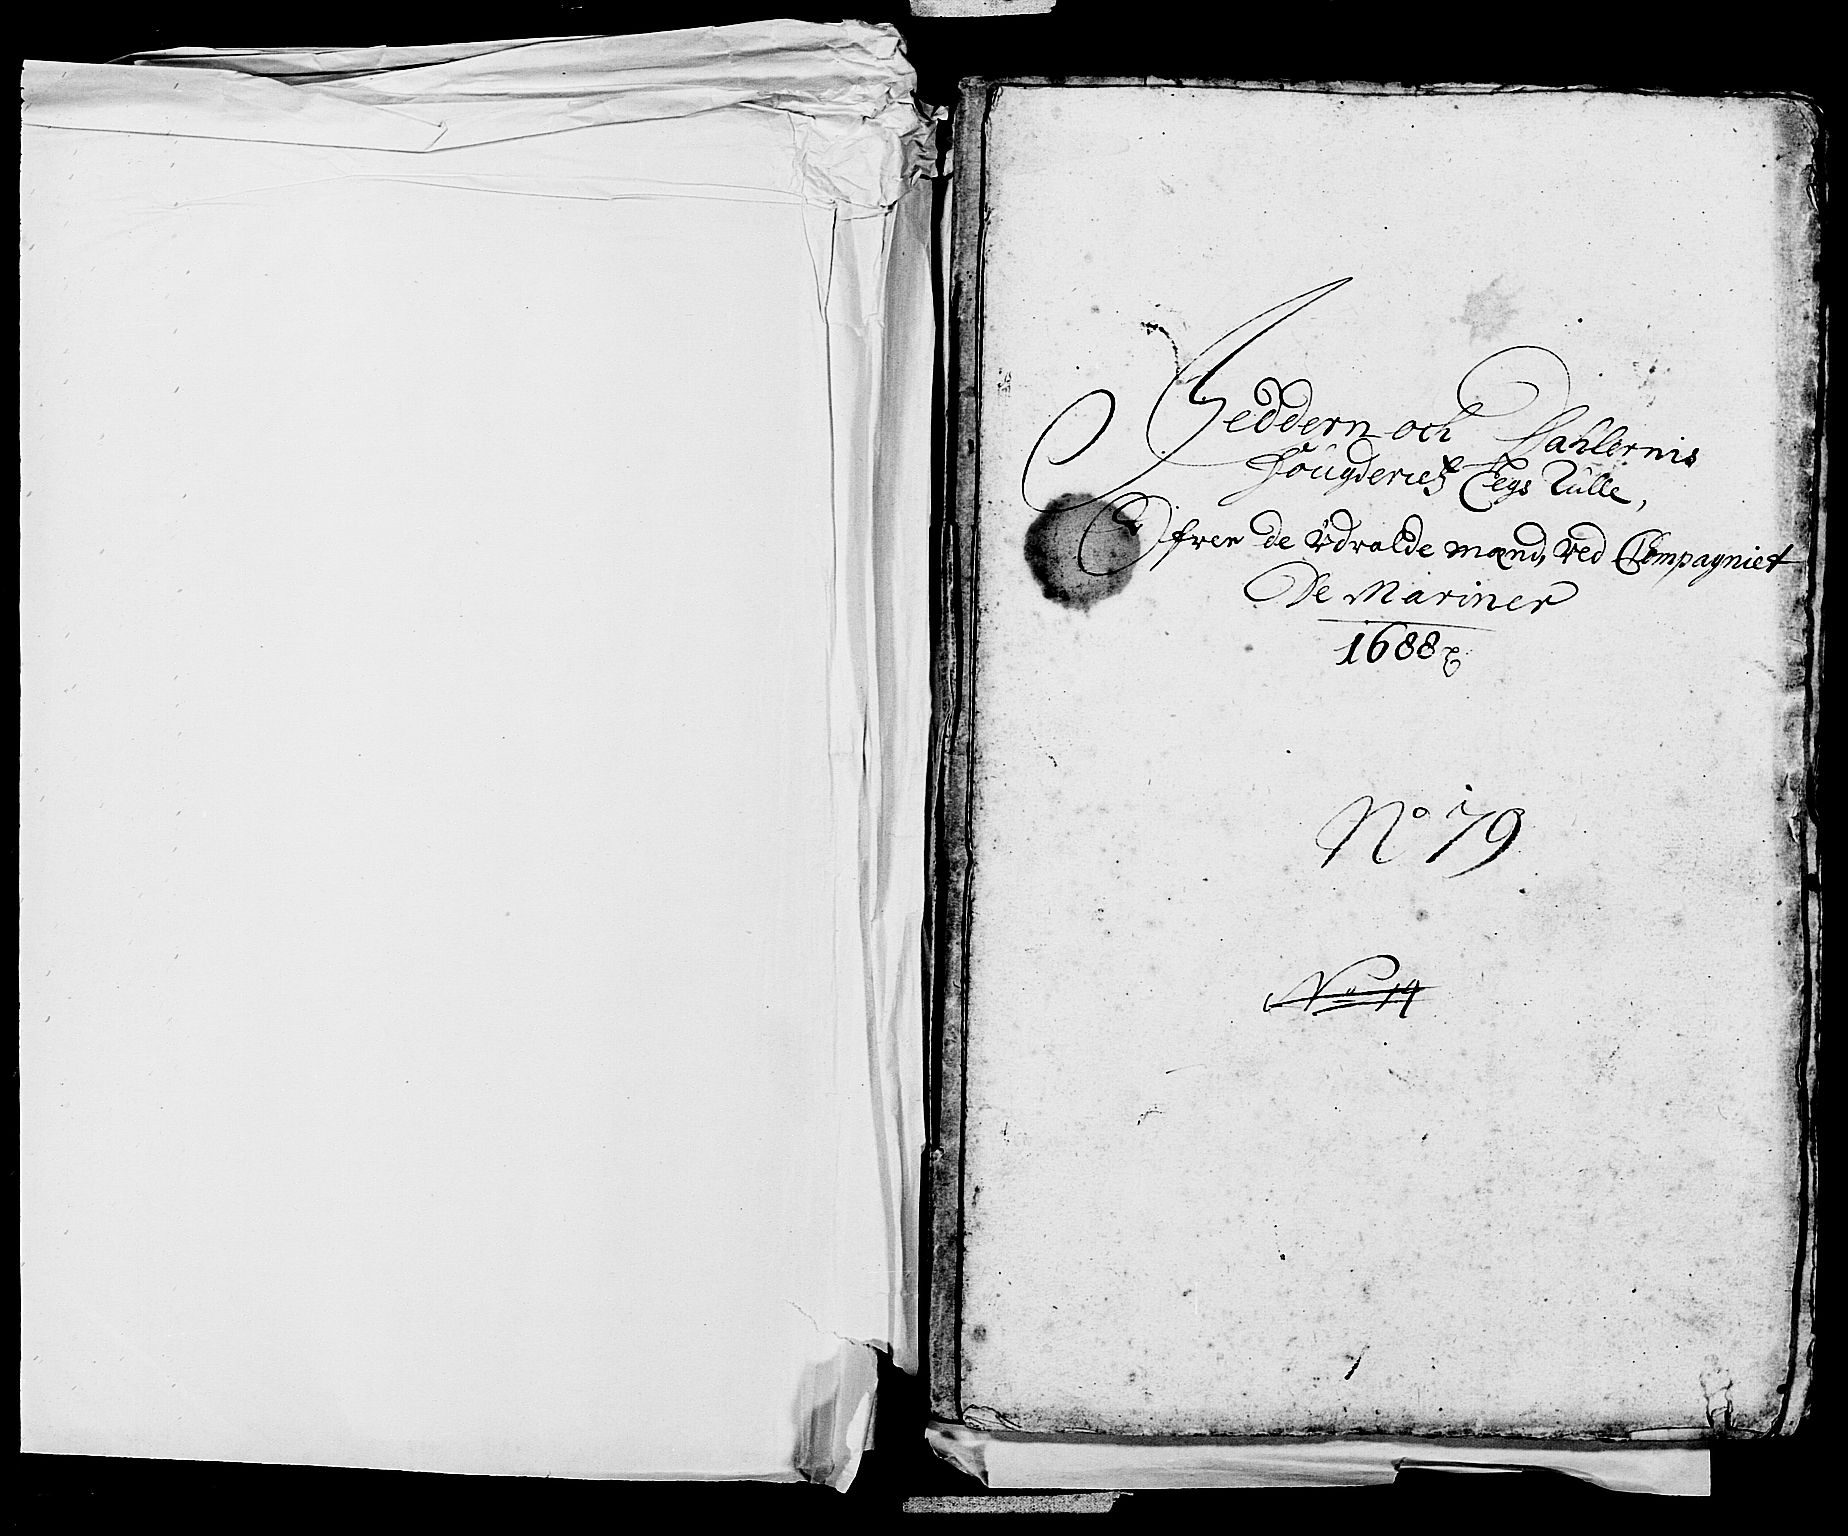 Jeddern och Dahlernis
Fougderies Legs Rulle,
Ofver de Udvalde mænd, ved Compagniet
De Mariner
1688
No 79
No 14
1